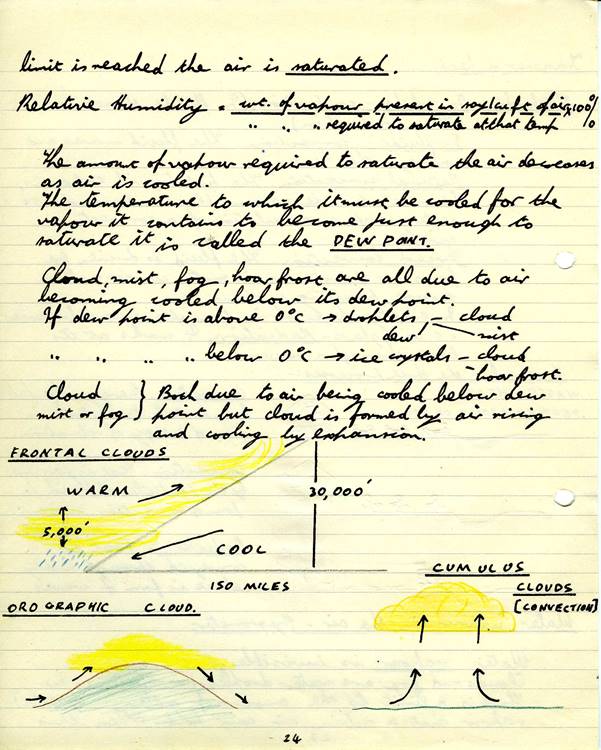 limit is reached the air is saturated.
Relative Humidity = wt. of vapour present in say 1 cu ft of air × 100 %
" " " required to saturate at that temp
The amount of vapour required to saturate the air decreases
as air is cooled.
The temperature to which it must be cooled for the
vapour it contains to become just enough to
saturate it is called the DEW POINT.
Cloud, mist, fog, hoar frost are all due to air
becoming cooled below its dew point.
If dew point is above 0°C → droplets – cloud
dew! mist
" " " " below 0°C → ice crystals – cloud
hoar frost.
Cloud } Both due to air being cooled below dew
mist or fog } point but cloud is formed by air rising
and cooling by expansion.
FRONTAL CLOUDS
WARM
30,000'
5,000'
COOL
150 MILES
CUMULUS
CLOUDS
[CONVECTION]
OROGRAPHIC CLOUD.
24